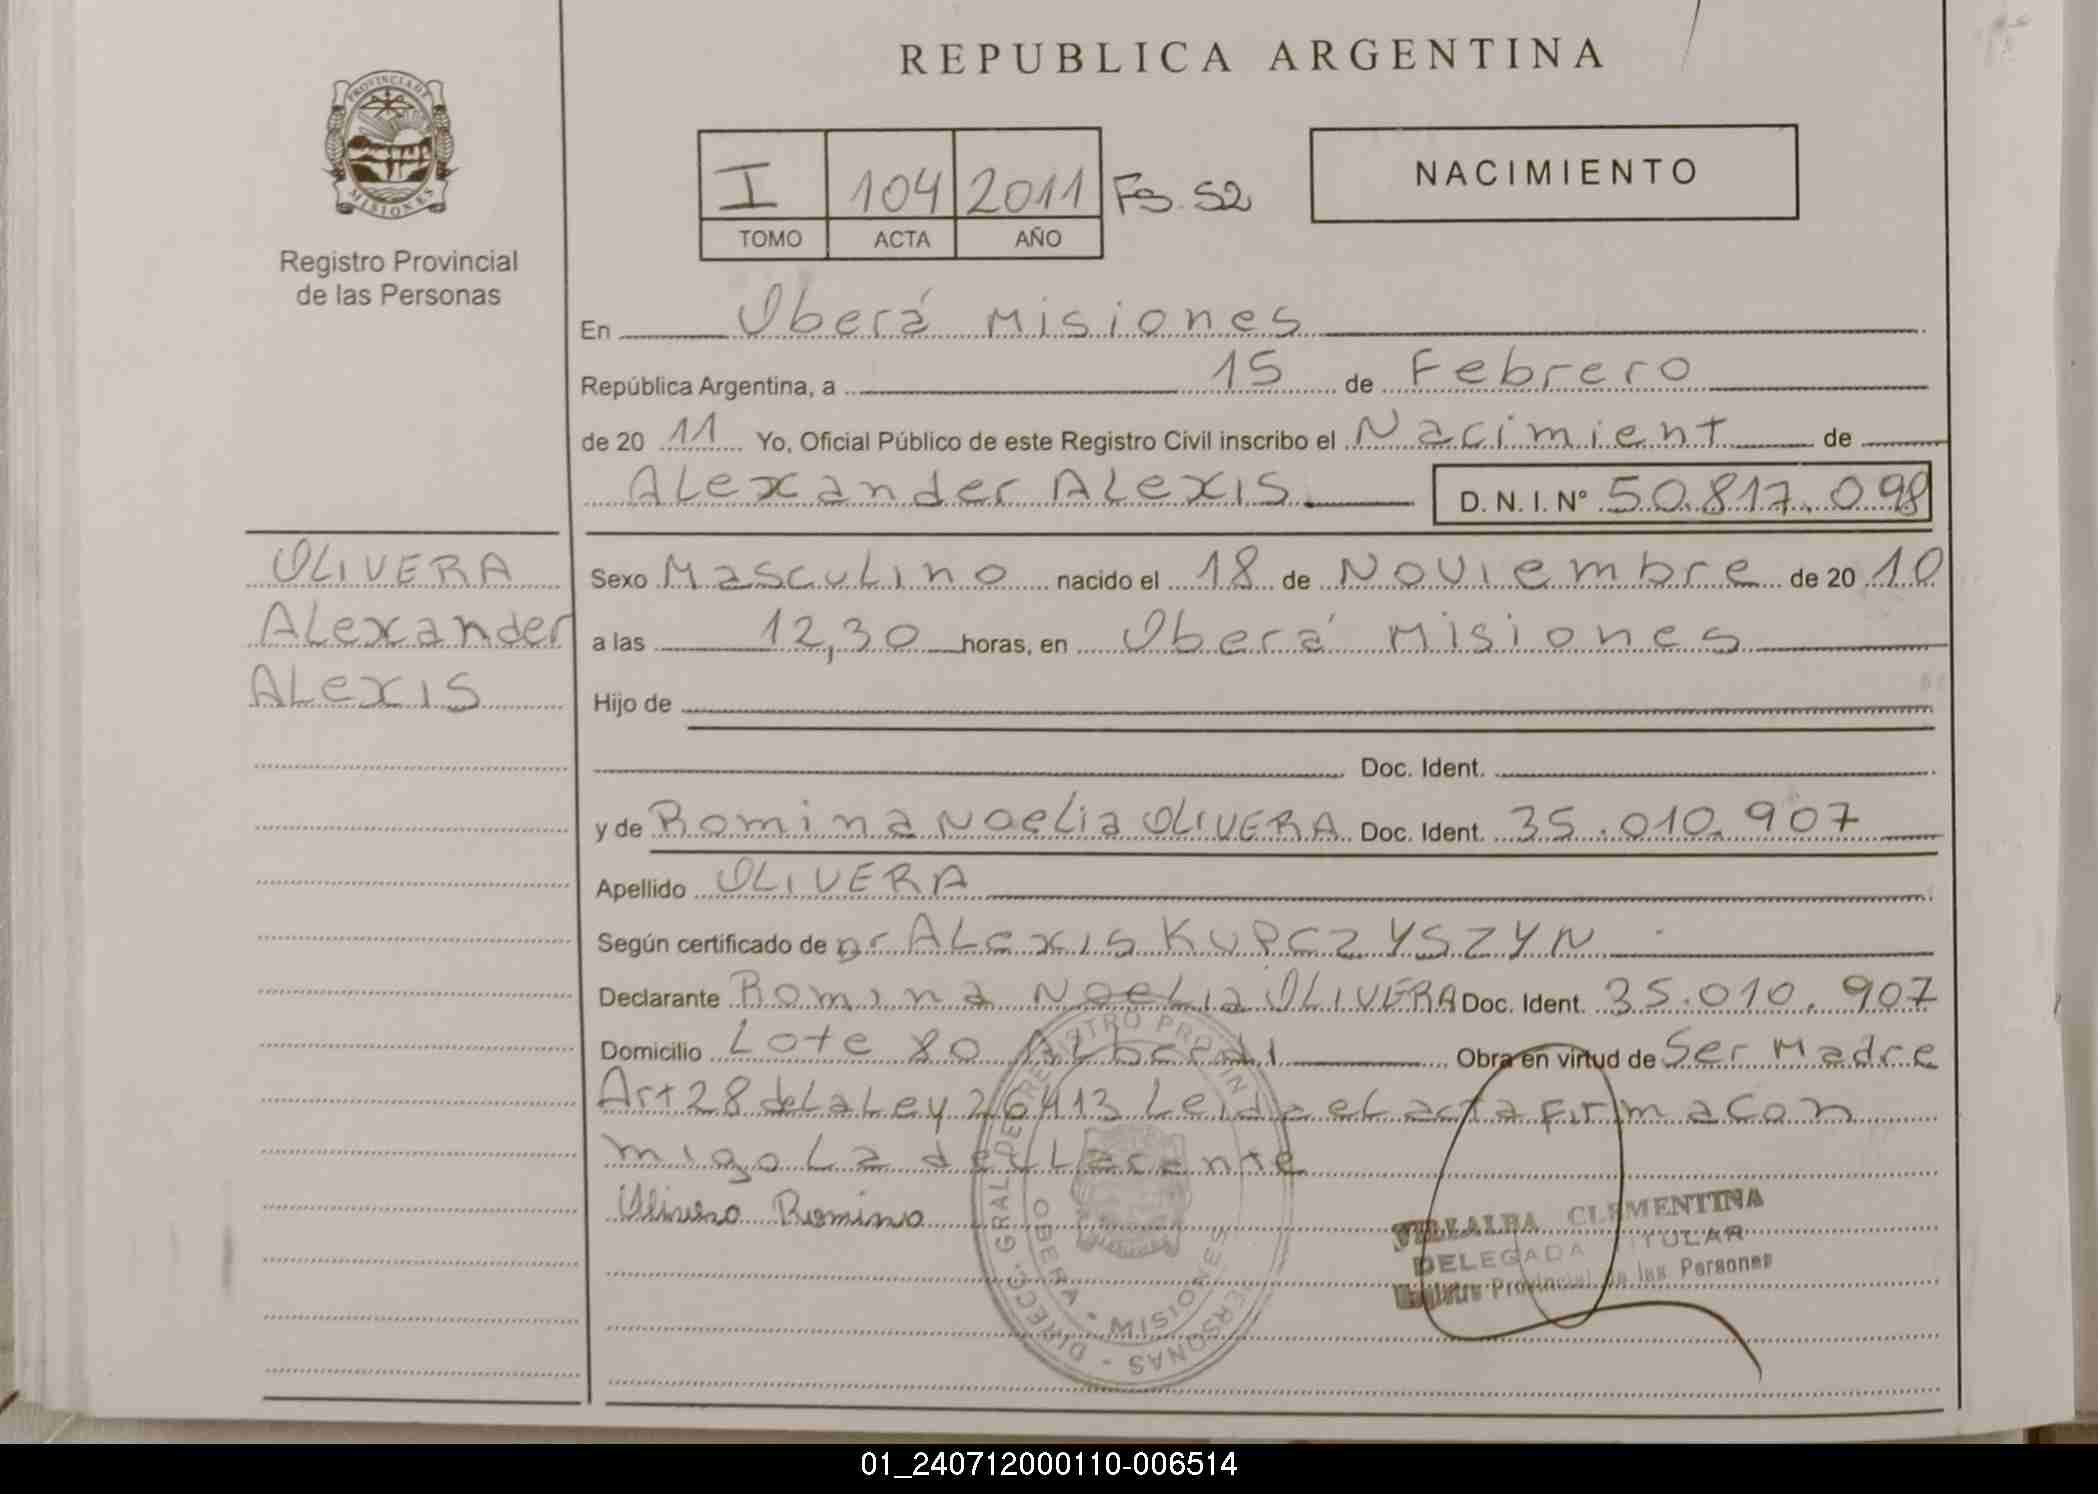 REPUBLICA ARGENTINA
PROVINCIA DE MISIONES
Registro Provincial
de las Personas
I 104 2011 Fs. 52
TOMO ACTA AÑO
NACIMIENTO
En Oberá Misiones
República Argentina, a 15 de Febrero
de 2011 Yo, Oficial Público de este Registro Civil inscribo el Nacimient de
Alexander Alexis D. N. I. N° 50.817.098
OLIVERA
Alexander
Alexis
Sexo Masculino nacido el 18 de Noviembre de 2010
a las 12,30 horas, en Oberá Misiones
Hijo de
Doc. Ident.
y de Romina Noelia OLIVERA Doc. Ident. 35.010.907
Apellido OLIVERA
Según certificado de Dr Alexis KUPCZYSZYN
Declarante Romina Noelia OLIVERA Doc. Ident. 35.010.907
Domicilio Lote 80 Alberdi Obra en virtud de Ser Madre
Art 28 de La Ley 26413 Leida el acta firma con
migo La declarante
Olivera Romina
DIRECC. GRAL. DEL REGISTRO PROVIN PERSONAS
OBERA - MISIONES
VILLALBA CLEMENTINA
DELEGADA TITULAR
Registro Provincial de las Personas
01_240712000110-006514